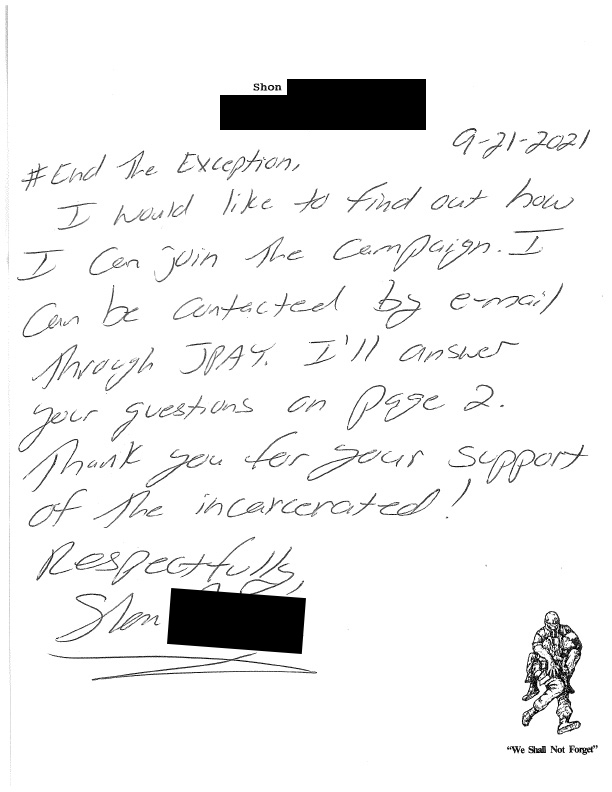 Shon
9-21-2021
#End The Exception,
I would like to find out how
I can join the campaign. I
can be contacted by e-mail
through JPAY. I'll answer
your questions on page 2.
Thank you for your support
of the incarcerated!
Respectfully,
Shon
"We Shall Not Forget"